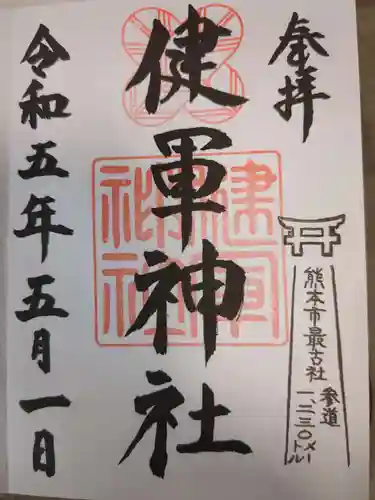 奉拝
熊本市最古社
参道
一、二三〇メートル
健軍神社
令和五年五月一日